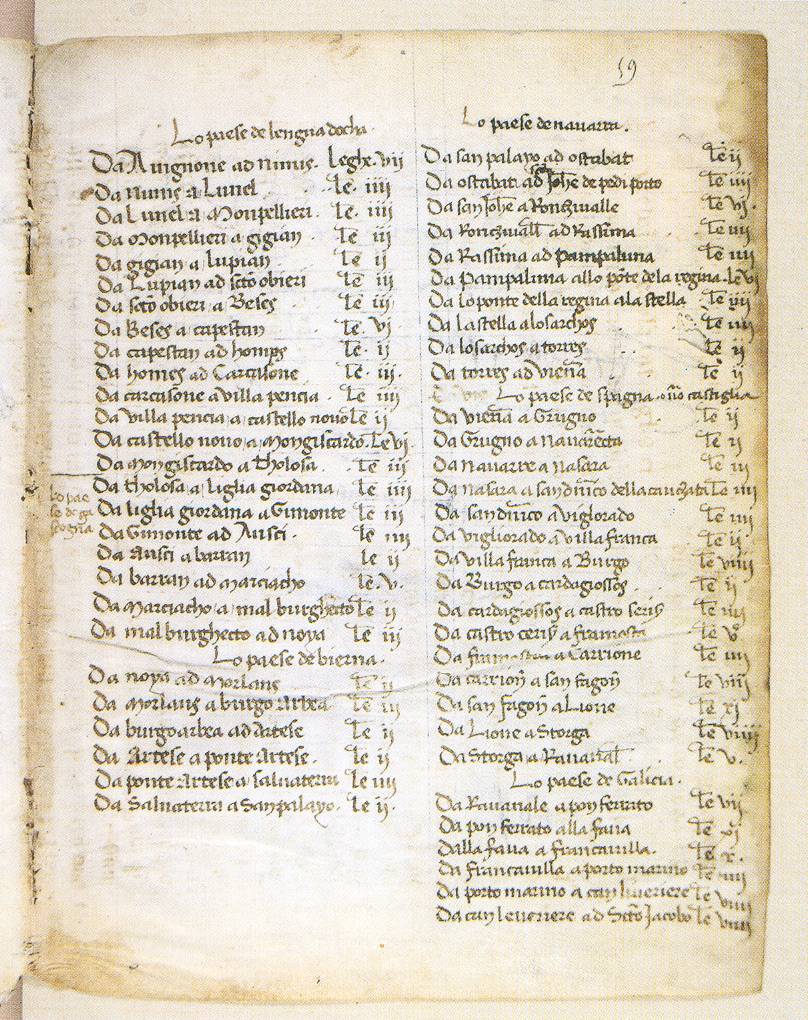 59
Lo paese de lengua docha
Da Avignone ad nimis. leghe. vij
Da nimis a Lunel. le. iiij
Da Lunel a Monpellieri. le. iij
Da Monpellieri a gigian. le iij
Da gigian a lupian. le ij
Da Lupian ad scto obieri le iij
Da scto obieri a Beses. le iij
Da Beses a capestan le. vj
Da capestan ad homps le. ij
Da homps ad Carcasone le. iij.
Da carcasone a villa pencia. le iiij
Da villa pencia a castello novo le ij
Da castello novo a mongiscardo. Le vj
Da mongiscardo a tholosa. le iij
lo pae
se de ga
scogna
Da tholosa a liglia giordana le iiij
Da liglia giordana a Gimonte le iij
Da Gimonte ad Ausci. le iiij
Da Ausci a barran le ij
Da barran ad marciacho le. v.
Da Marciacho a mal burghecto le ij
Da mal burghecto ad noya le iij
Lo paese de bierna.
Da noya ad Morlans le ij
Da Morlans a burgo arbea le iij
Da burgo arbea ad artese le ij
Da Artese a ponte artese. le ij
Da ponte Artese a salvaterra le iiij
Da Salvaterra a San palayo. le ij.
Lo paese de navarra.
Da san palayo ad ostabat le ij
Da ostabat ad san Johe de pedi porto le iiij
Da san Johe a Ronzivalle le vj.
Da Roncivall ad Rassina le iiij
Da Rassina ad Pampaluna le iiij
Da Pampaluna allo pote de la regina. le vj
Da lo ponte della regina a la stella le iiij
Da la stella a losarchos le iiij
Da losarchos a torres le ij
Da torres ad viena le ij
Lo paese de spagna. castiglia
Da viena a Grugno le ij
Da Grugno a navarecta le ij
Da navarre a nasara le iij
Da nasara a san dnico della causata le iiij
Da san dnico a viglorado le iiij
Da vigliorado a villa franca le ij
Da villa franca a Burgo le viiij
Da Burgo a cardagiossos. le ij
Da cardagiossos a castro seris le iiij
Da castro ceris a le v
Da a Carrione le iiij
Da carrion a san fagon le viij
Da san fagon a Lione le xj
Da Lione a Storga le viiij
Da Storga a Ravanal le v.
Lo paese de Galicia.
Da Ravanale a pon ferrato le vij
Da pon ferrato alla fava le xj
Dalla fava a francavilla. le x.
Da francavilla a porto marino le iiij
Da porto marino a can leveriere le viiij
Da can leveriere ad Scto Jacobo le viiij